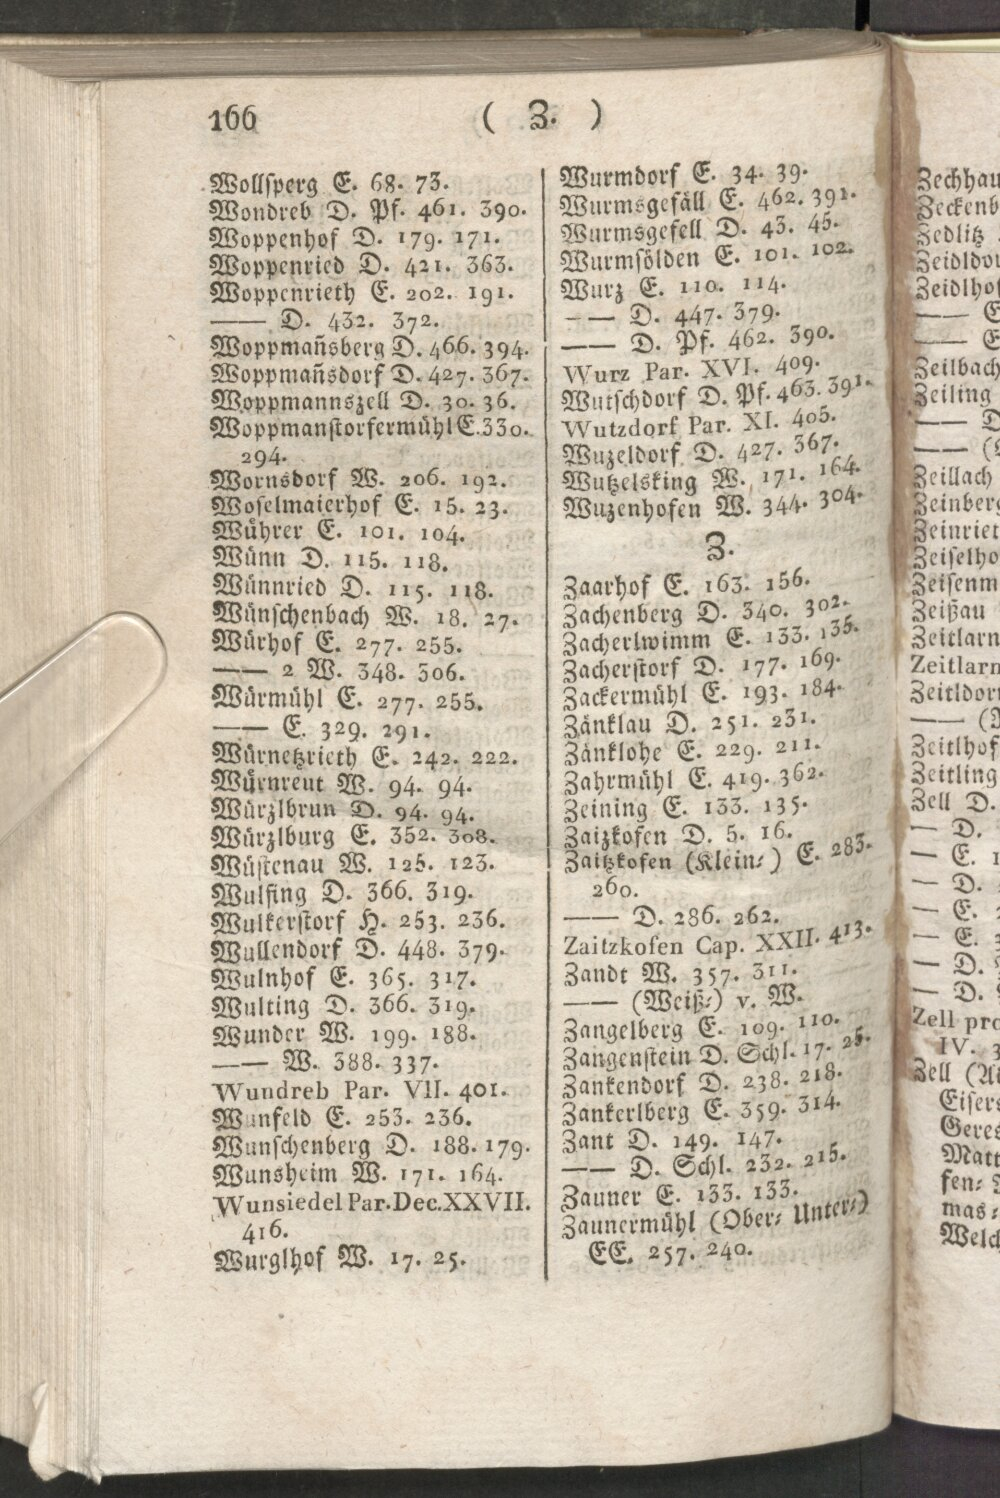 166
( Z. )
Wollsperg E. 68. 73.
Wondreb D. Pf. 461. 390.
Woppenhof D. 179. 171.
Woppenried D. 421. 363.
Woppenrieth E. 202. 191.
—— D. 432. 372.
Woppmañsberg D. 466. 394.
Woppmañsdorf D. 427. 367.
Woppmannszell D. 30. 36.
Woppmanstorfermühl E. 330.
294.
Wornsdorf W. 206. 192.
Woselmaierhof E. 15. 23.
Wührer E. 101. 104.
Wünn D. 115. 118.
Wünnried D. 115. 118.
Wünschenbach W. 18. 27.
Würhof E. 277. 255.
—— 2 W. 348. 306.
Würmühl E. 277. 255.
—— E. 329. 291.
Würnetzrieth E. 242. 222.
Würnreut W. 94. 94.
Würzlbrun D. 94. 94.
Würzlburg E. 352. 308.
Wüstenau W. 125. 123.
Wulfing D. 366. 319.
Wulkerstorf H. 253. 236.
Wullendorf D. 448. 379.
Wulnhof E. 365. 317.
Wulting D. 366. 319.
Wunder W. 199. 188.
—— W. 388. 337.
Wundreb Par. VII. 401.
Wunfeld E. 253. 236.
Wunschenberg D. 188. 179.
Wunsheim W. 171. 164.
Wunsiedel Par. Dec. XXVII.
416.
Wurglhof W. 17. 25.
Wurmdorf E. 34. 39.
Wurmsgefäll E. 462. 391.
Wurmsgefell D. 43. 45.
Wurmsölden E. 101. 102.
Wurz E. 110. 114.
—— D. 447. 379.
—— D. Pf. 462. 390.
Wurz Par. XVI. 409.
Wutschdorf D. Pf. 463. 391.
Wutzdorf Par. XI. 405.
Wuzeldorf D. 427. 367.
Wutzelsking W. 171. 164.
Wuzenhofen W. 344. 304.
Z.
Zaarhof E. 163. 156.
Zachenberg D. 340. 302.
Zacherlwimm E. 133. 135.
Zacherstorf D. 177. 169.
Zackermühl E. 193. 184.
Zänklau D. 251. 231.
Zänklohe E. 229. 211.
Zahrmühl E. 419. 362.
Zeining E. 133. 135.
Zaizkofen D. 5. 16.
Zaitzkofen (Klein-) E. 283.
260.
—— D. 286. 262.
Zaitzkofen Cap. XXII. 413.
Zandt W. 357. 311.
—— (Weiß-) v. W.
Zangelberg E. 109. 110.
Zangenstein D. Schl. 17. 25.
Zankendorf D. 238. 218.
Zankerlberg E. 359. 314.
Zant D. 149. 147.
—— D. Schl. 232. 215.
Zauner E. 133. 133.
Zaunermühl (Ober- Unter-)
EE. 257. 240.
Zedlitz
Zeiling
Zeißau
Zell D.
— D.
— E.
— D.
— E.
— E.
— D.
— D.
IV.